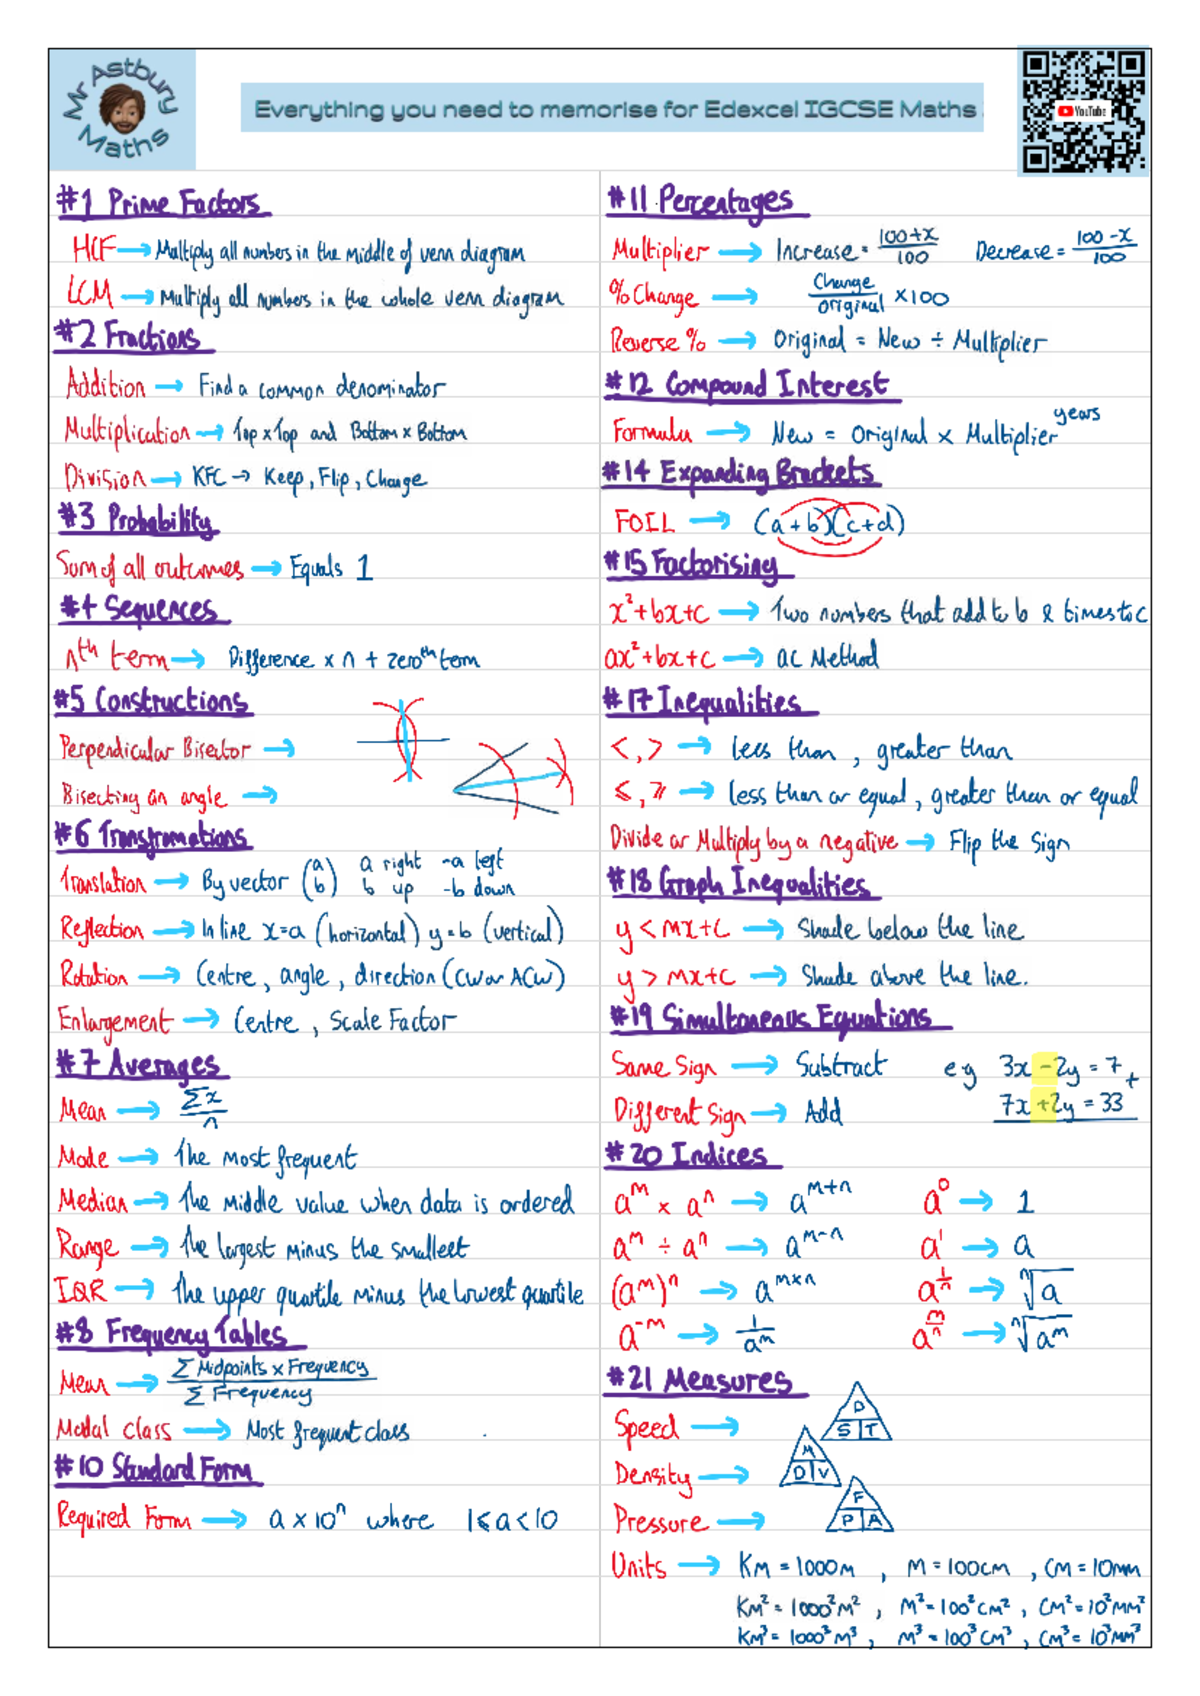 Mr Astbury
Maths
Everything you need to memorise for Edexcel IGCSE Maths
YouTube
#1 Prime Factors
HCF → Multiply all numbers in the middle of venn diagram
LCM → Multiply all numbers in the whole venn diagram
#2 Fractions
Addition → Find a common denominator
Multiplication → Top x Top and Bottom x Bottom
Division → KFC → Keep, Flip, Change
#3 Probability
Sum of all outcomes → Equals 1
#4 Sequences
nᵗʰ term → Difference x n + zeroᵗʰ term
#5 Constructions
Perpendicular Bisector →
Bisecting an angle →
#6 Transfromations
Translation → By vector (a b) a right -a left
b up -b down
Reflection → In line x=a (horizontal) y=b (vertical)
Rotation → Centre, angle, direction (CW or ACW)
Enlargement → Centre, Scale Factor
#7 Averages
Mean → Σx/n
Mode → The most frequent
Median → The middle value when data is ordered
Range → The largest minus the smallest
IQR → The upper quartile minus the lowest quartile
#8 Frequency Tables
Mean → Σ Midpoints x Frequency / Σ Frequency
Modal class → Most frequent class
#10 Standard Form
Required Form → a x 10ⁿ where 1⩽a<10
#11 Percentages
Multiplier → Increase = 100+x/100 Decrease = 100-x/100
% Change → Change/Original x100
Reverse % → Original = New ÷ Multiplier
#12 Compound Interest
Formula → New = Original x Multiplier^years
#14 Expanding Brackets
FOIL → (a+b)(c+d)
#15 Factorising
x²+bx+c → Two numbers that add to b & times to c
ax²+bx+c → ac Method
#17 Inequalities
<, > → less than, greater than
⩽, ⩾ → less than or equal, greater than or equal
Divide or Multiply by a negative → Flip the Sign
#18 Graph Inequalities
y < mx+c → Shade below the line
y > mx+c → Shade above the line.
#19 Simultaneous Equations
Same Sign → Subtract eg 3x-2y=7 +
Different Sign → Add 7x+2y=33
#20 Indices
aᵐ x aⁿ → aᵐ⁺ⁿ a⁰ → 1
aᵐ ÷ aⁿ → aᵐ⁻ⁿ a¹ → a
(aᵐ)ⁿ → aᵐˣⁿ a^(1/n) → ⁿ√a
a⁻ᵐ → 1/aᵐ a^(m/n) → ⁿ√aᵐ
#21 Measures
Speed → D S T
Density → M D V
Pressure → F P A
Units → Km = 1000m, m = 100cm, cm = 10mm
Km² = 1000²m², m² = 100²cm², cm² = 10²mm²
Km³ = 1000³m³, m³ = 100³cm³, cm³ = 10³mm³